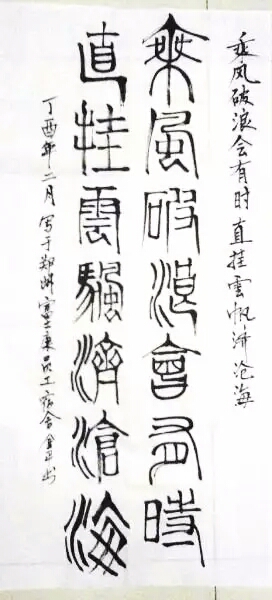 乘风破浪会有时直挂雲帆济沧海
乘風破浪會有時
直挂雲颿濟滄海
丁酉年二月写于郑州富士康员工宿舍